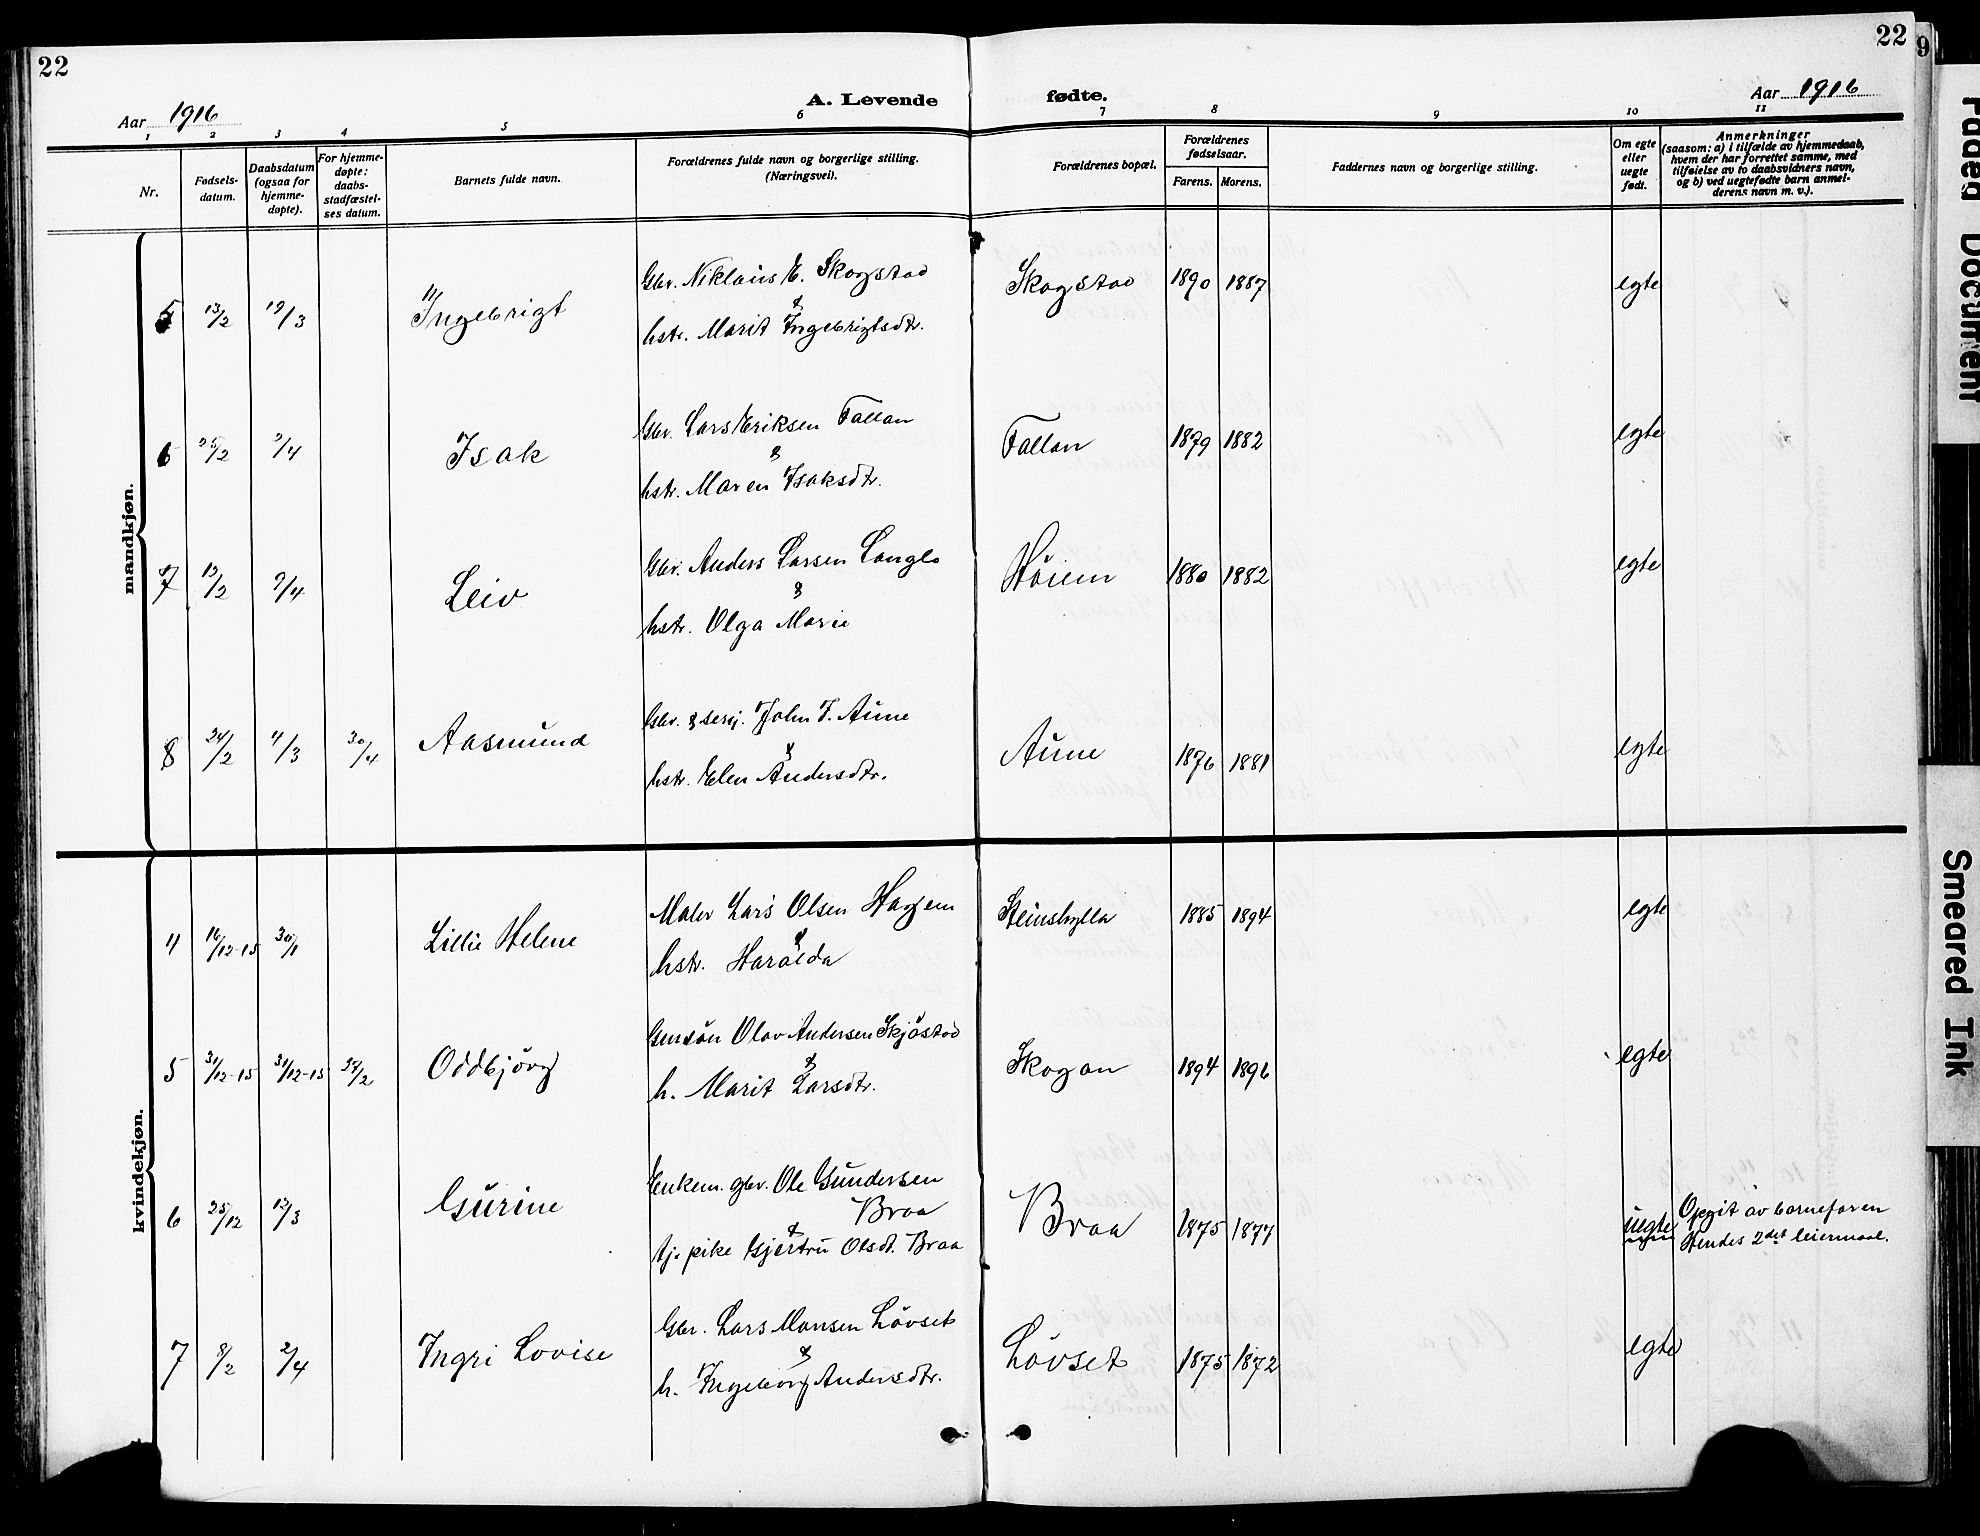 22
22
9
Aar 1916
A. Levende fødte.
Aar 1916
1 2 3 4 5 6 7 8 9 10 11
Nr.
Fødsels-
datum.
Daabsdatum
(ogsaa for
hjemme-
døpte).
For hjemme-
døpte:
daabs-
stadfæstel-
ses datum.
Barnets fulde navn.
Forældrenes fulde navn og borgerlige stilling.
(Næringsvei).
Forældrenes bopæl.
Forældrenes
fødselsaar.
Farens. Morens.
Faddernes navn og borgerlige stilling.
Om egte
eller
uegte
født.
Anmerkninger
(saasom: a) i tilfælde av hjemmedaab,
hvem der har forrettet samme, med
tilføielse av to daabsvidners navn,
og b) ved uegtefødte barn anmel-
derens navn m. v.).
mandkjøn.
5 13/2 19/3 Ingebrigt
Gbr. Niklaus E. Skogstad
&
hstr. Marit Ingebrigtsdtr.
Skogstad 1890 1887 egte
6 25/2 2/4 Isak
Gbr. Lars Eriksen Fallan
&
hstr. Maren Isaksdtr.
Fallan 1879 1882 egte
7 13/2 9/4 Leiv
Gbr. Anders Larsen Langlo
&
hstr. Olga Marie
Høiem 1880 1882 egte
8 24/2 4/3 30/4 Aasmund
Gbr. & serj. John J. Aune
&
hstr. Elen Andersdtr.
Aune 1876 1881 egte
kvindekjøn.
4 16/12-15 30/1 Lillie Helene
Maler Lars Olsen Hagem
&
hstr. Haralda
Steinshylla 1885 1894 egte
5 31/12-15 31/12-15 27/2 Oddbjørg
Gmsøn Olav Andersen Skjøstad
&
h. Marit Larsdtr.
Skogan 1894 1896 egte
6 25/12 12/3 Gurine
Enkem. gbr. Ole Gundersen
Braa
&
tj. pike Gjertru Olsdt. Braa
Braa 1875 1877 uegte
Opgit av barnefaren
Hendes 2det leiermaal.
7 8/2 2/4 Ingri Lovise
Gbr. Lars Hansen Løvset
&
h. Ingeborg Andersdtr.
Løvset 1875 1872 egte
Faded Document
Smeared Ink